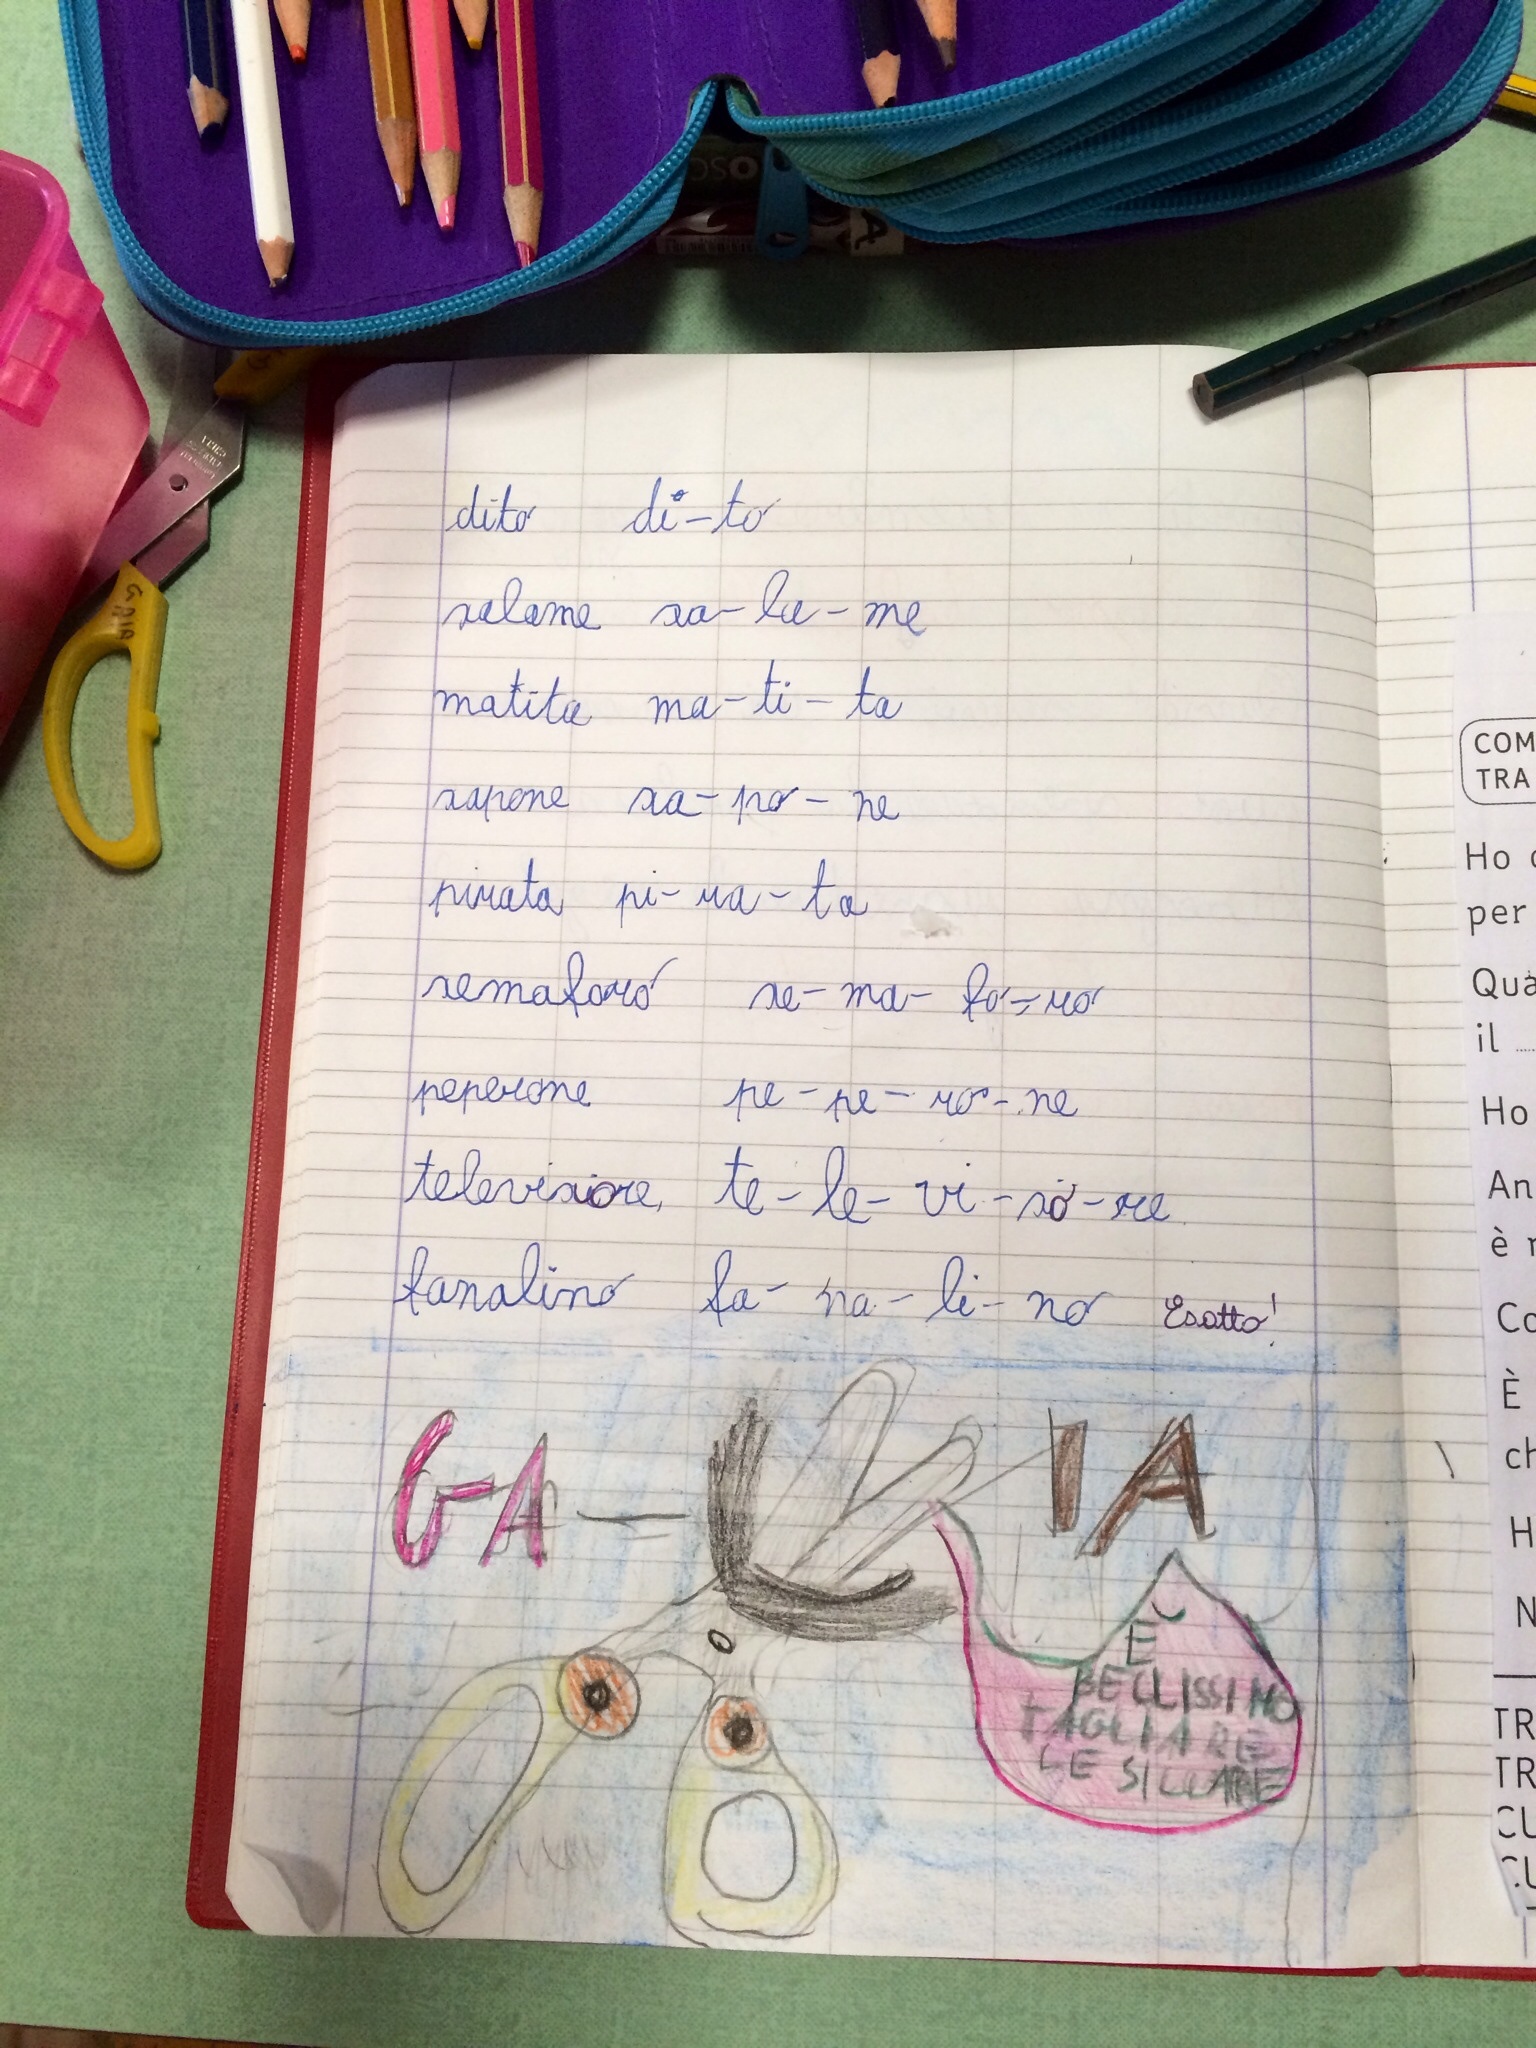 dito di-to
salame sa-la-me
matita ma-ti-ta
sapone sa-po-ne
pirata pi-ra-ta
semaforo se-ma-fo-ro
peperone pe-pe-ro-ne
televisore te-le-vi-so-re
fanalino fa-na-li-no Esatto!
GA- IA
È
BELLISSIMO
TAGLIARE
LE SILLABE
GAIA
COM
TRA
Ho
per
Qua
il
Ho
An
è
Co
È
ch
H
N
TR
TR
CU
CU